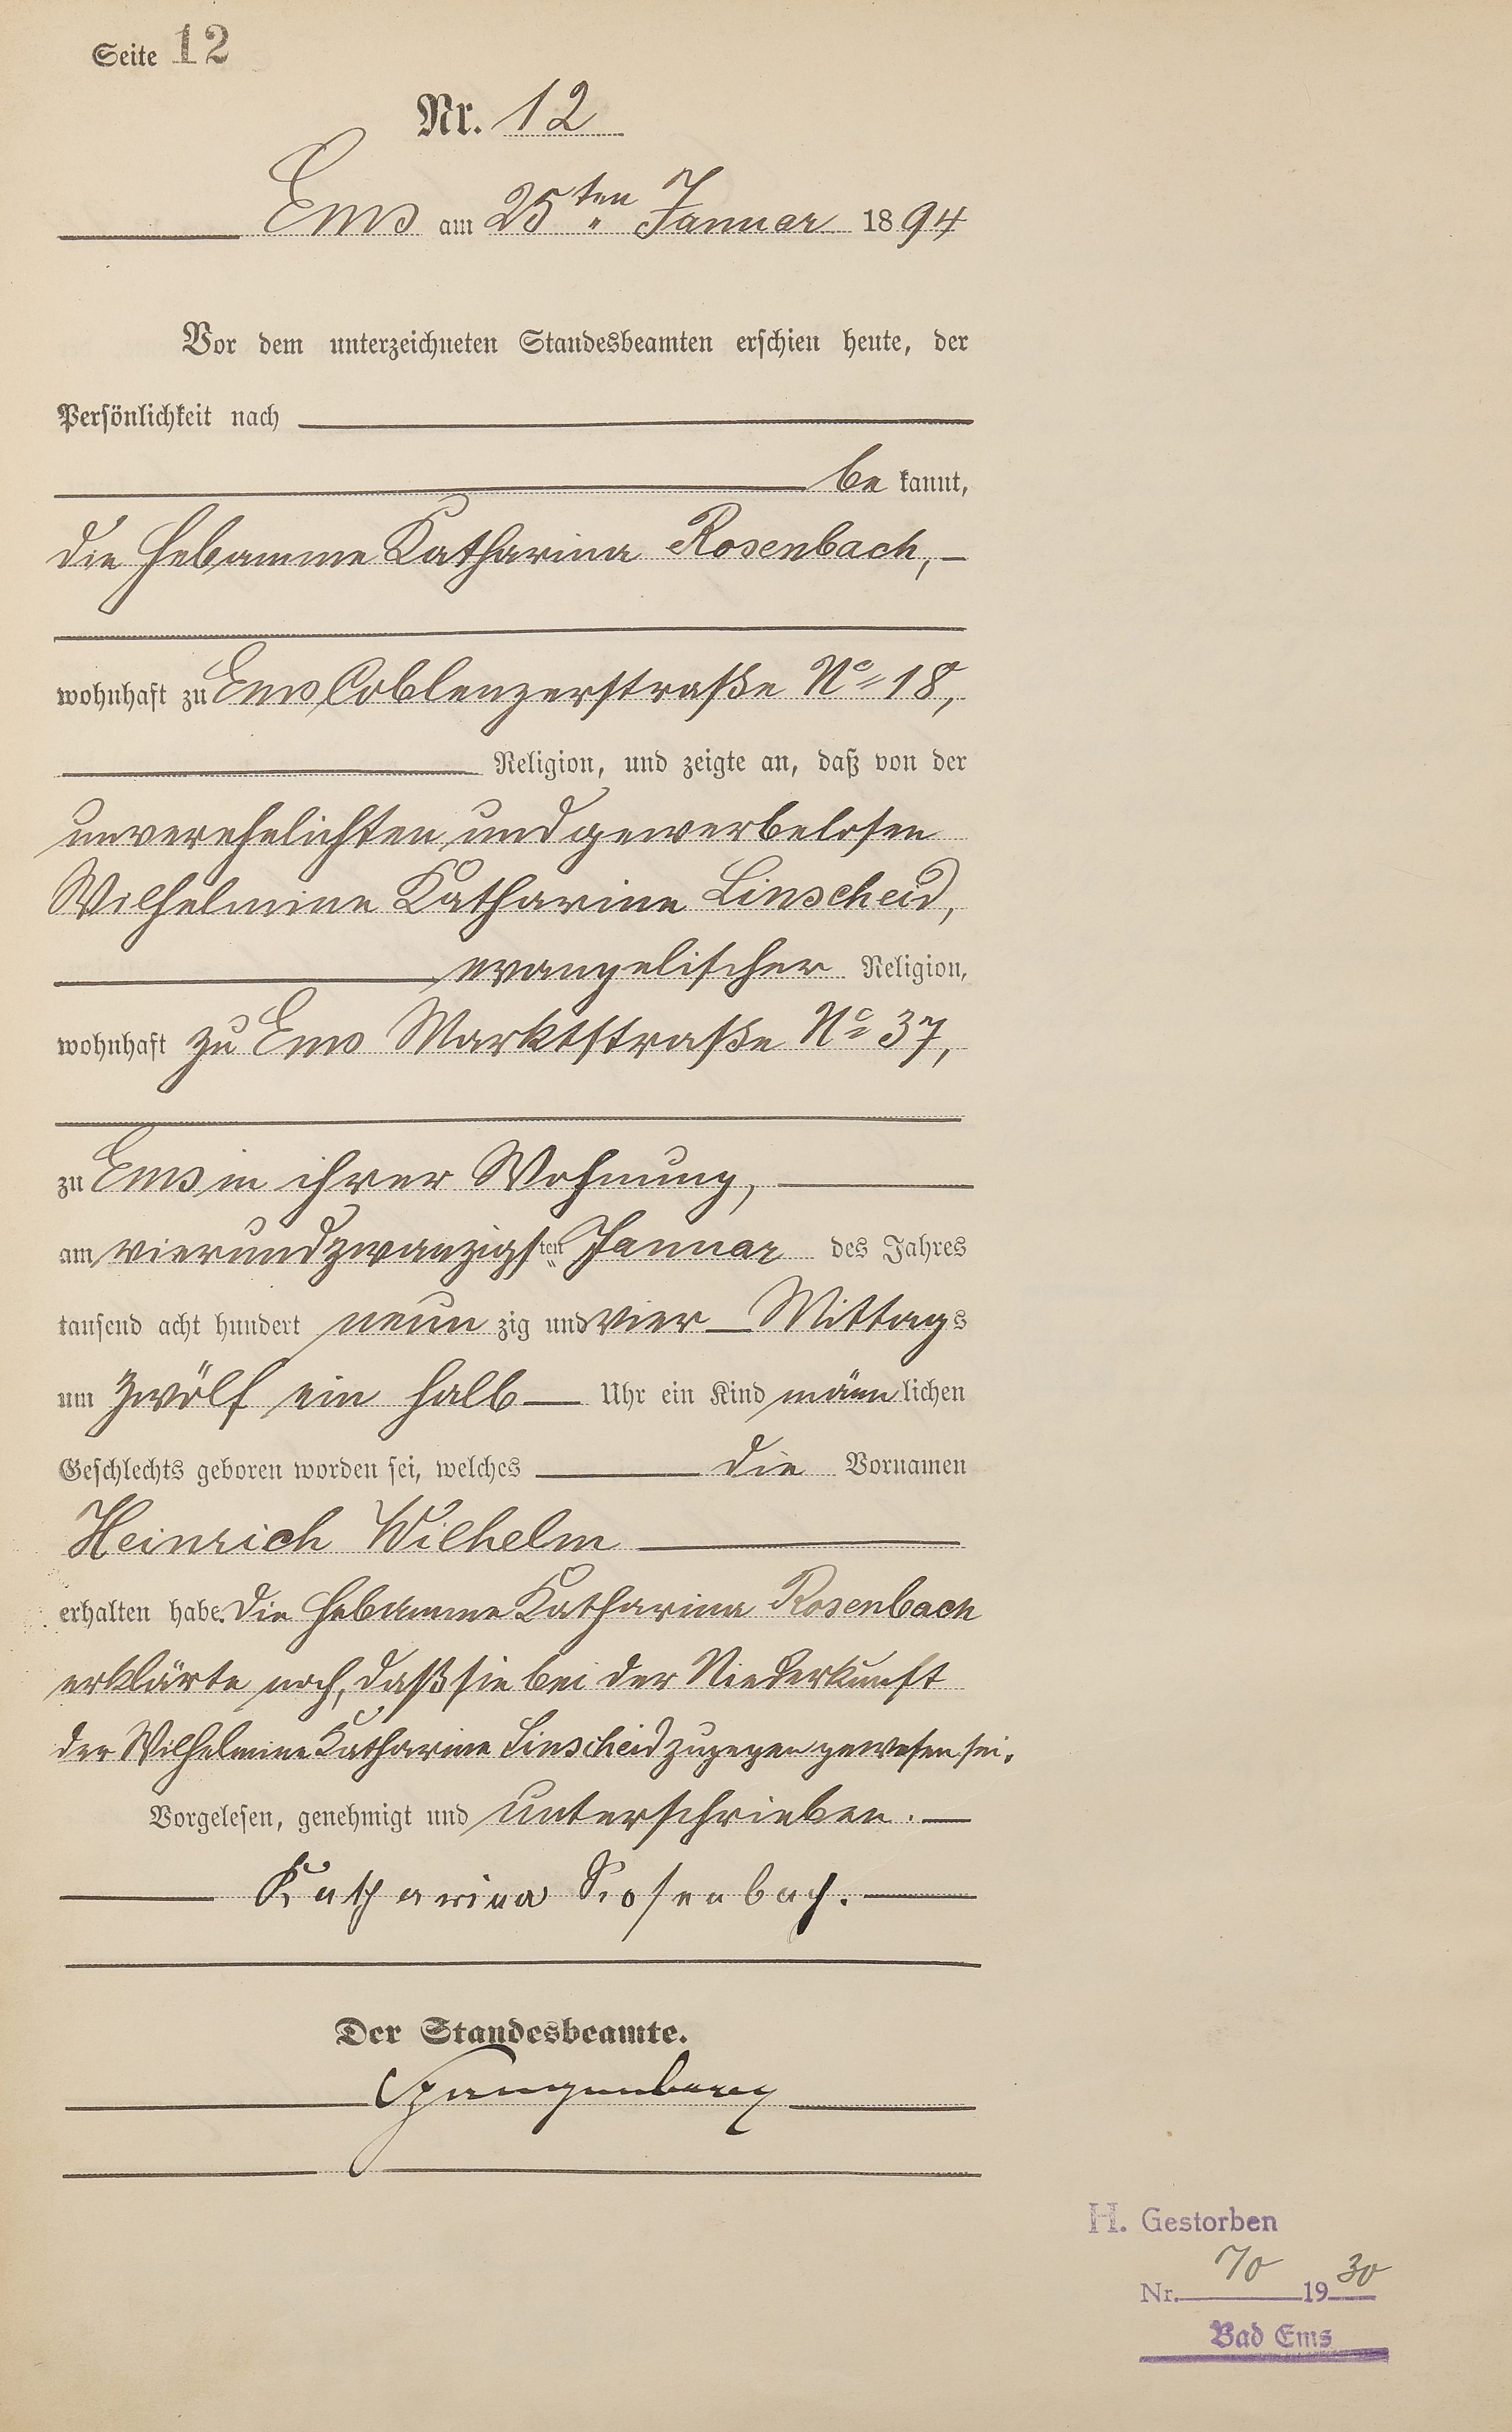 Seite 12
Nr. 12
Ems am 25ten Januar 1894
Vor dem unterzeichneten Standesbeamten erschien heute, der
Persönlichkeit nach
be kannt,
die Hebamme Katharina Rosenbach,
wohnhaft zu Ems Coblenzerstraße No 18,
Religion, und zeigte an, daß von der
unverehelichten und gewerbelosen
Wilhelmine Katharine Linscheid,
evangelischer Religion,
wohnhaft zu Ems Marktstraße No 37,
zu Ems in ihrer Wohnung,
am vierundzwanzigsten Januar des Jahres
tausend acht hundert neun zig und vier Mittags
um zwölf ein halb Uhr ein Kind männlichen
Geschlechts geboren worden sei, welches die Vornamen
Heinrich Wilhelm
erhalten habe. Die Hebamme Katharina Rosenbach
erklärte noch, daß sie bei der Niederkunft
der Wilhelmine Katharine Linscheid zugegen gewesen sei.
Vorgelesen, genehmigt und unterschrieben.
Katharina Rosenbach.
Der Standesbeamte.
H. Gestorben
Nr. 70 1930
Bad Ems